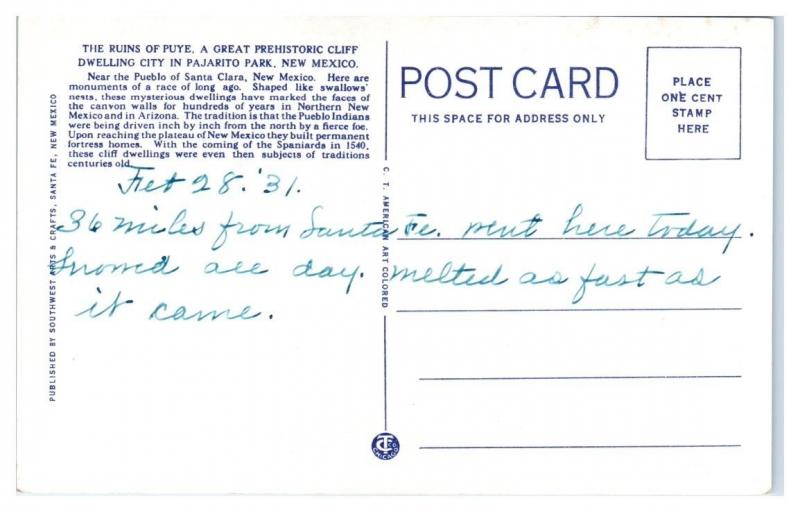 THE RUINS OF PUYE, A GREAT PREHISTORIC CLIFF
DWELLING CITY IN PAJARITO PARK, NEW MEXICO.
Near the Pueblo of Santa Clara, New Mexico. Here are
monuments of a race of long ago. Shaped like swallows'
nests, these mysterious dwellings have marked the faces of
the canyon walls for hundreds of years in Northern New
Mexico and in Arizona. The tradition is that the Pueblo Indians
were being driven inch by inch from the north by a fierce foe.
Upon reaching the plateau of New Mexico they built permanent
fortress homes. With the coming of the Spaniards in 1540,
these cliff dwellings were even then subjects of traditions
centuries old.
POST CARD
THIS SPACE FOR ADDRESS ONLY
PLACE
ONE CENT
STAMP
HERE
Feb 28. '31.
36 miles from Santa Fe. went here today.
Snowed all day. melted as fast as
it came.
PUBLISHED BY SOUTHWEST ARTS & CRAFTS, SANTA FE, NEW MEXICO
C. T. AMERICAN ART COLORED
CT
CHICAGO